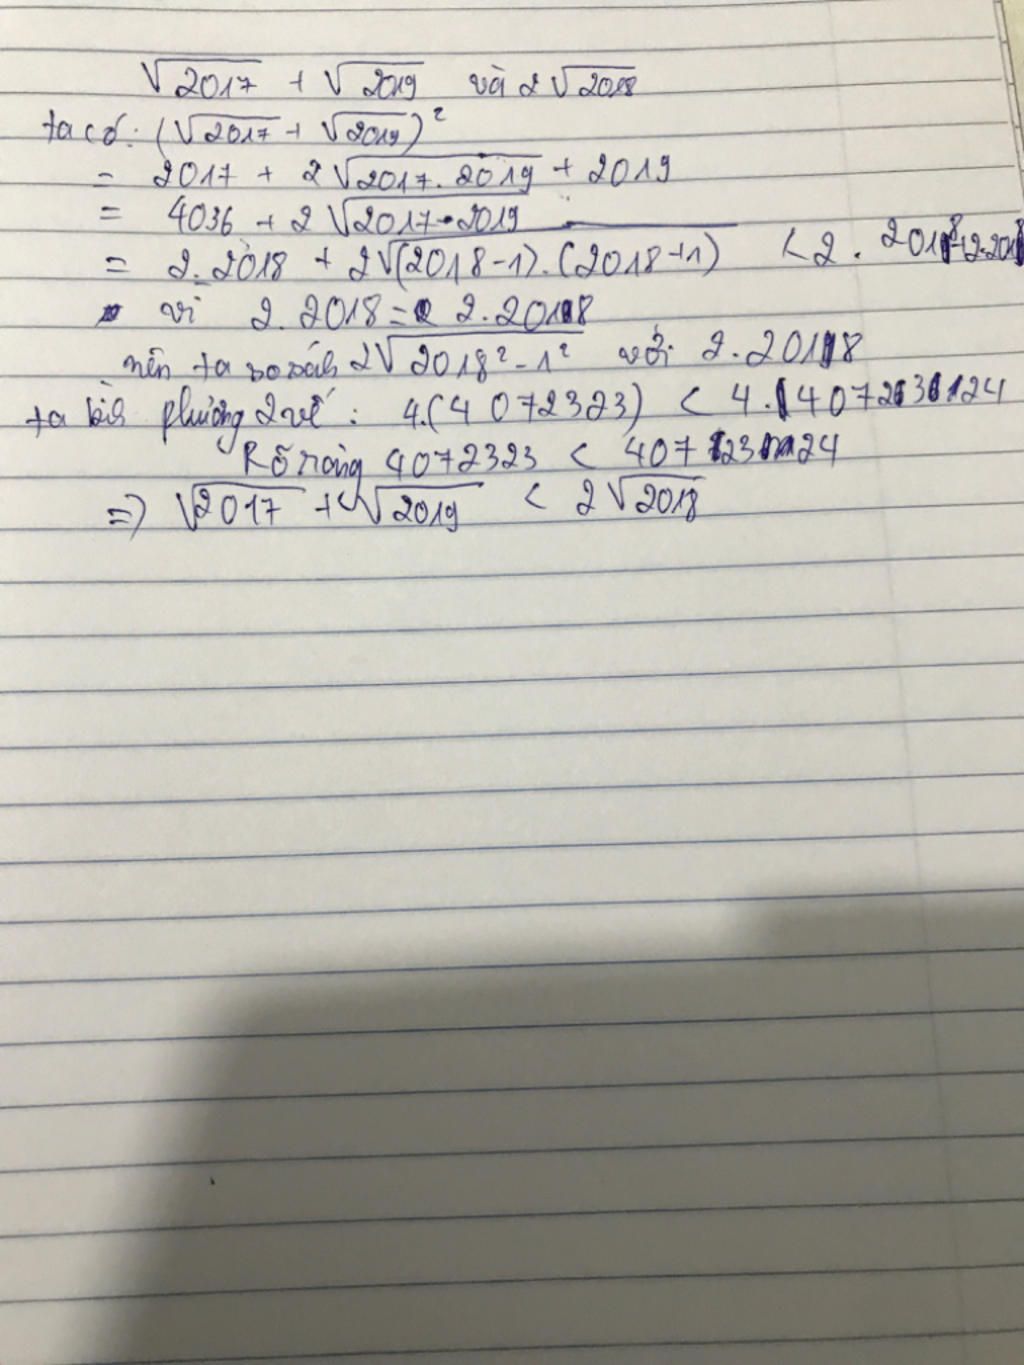 √2017 + √2019 và 2√2018
ta có: (√2017 + √2019)²
= 2017 + 2√2017.2019 + 2019
= 4036 + 2√2017.2019
= 2.2018 + 2√(2018-1).(2018+1) < 2.2018+2.2018
vì 2.2018 = 2.2018
nên ta so sánh 2√2018²-1² với 2.2018
ta bình phương 2 vế: 4.(4072323) < 4.4072324
Rõ ràng 4072323 < 4072324
=) √2017 + √2019 < 2√2018